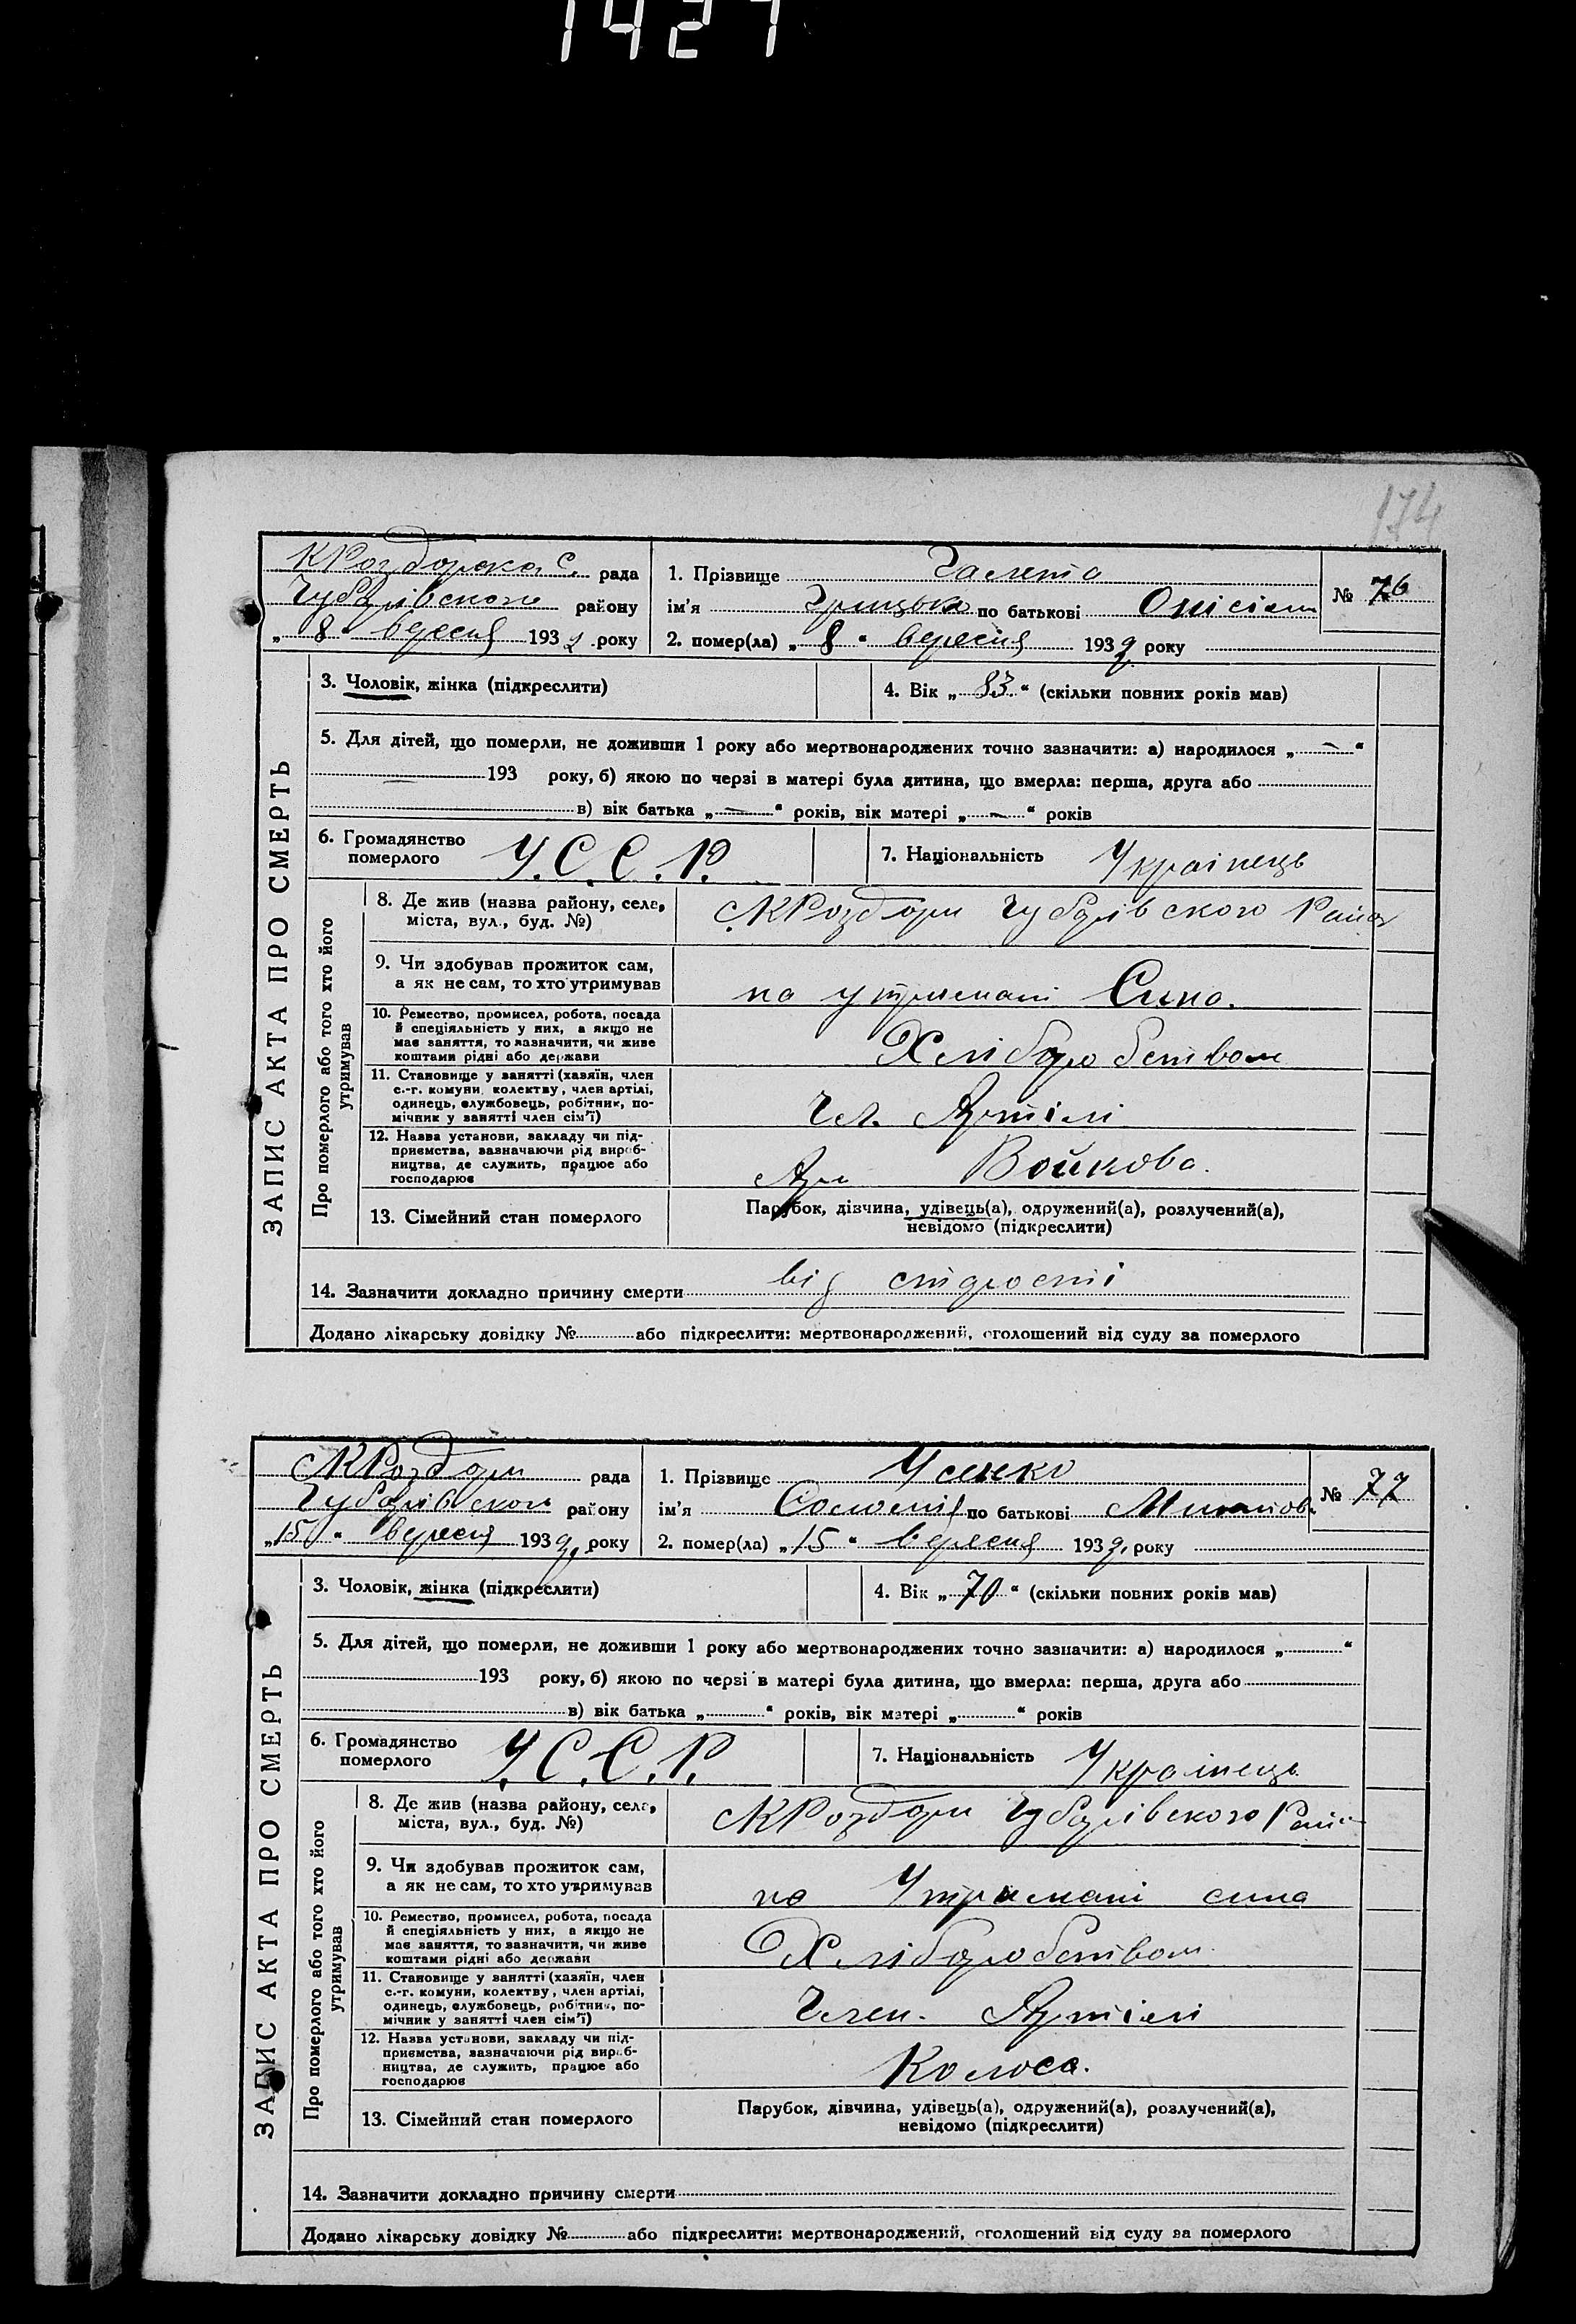 1427
174
КРоздорска С. рада
Чубарівського району
„ 8 “ вересня 1932 року
1. Прізвище Галета
ім'я Грицько по батькові Онісієв
2. помер(ла) „ 8 “ вересня 1932 року
№ 76
ЗАПИС АКТА ПРО СМЕРТЬ
3. Чоловік, жінка (підкреслити)
4. Вік „ 83 “ (скільки повних років мав)
5. Для дітей, що померли, не доживши 1 року або мертвонароджених точно зазначити: а) народилося „ — “
— 193 року, б) якою по черзі в матері була дитина, що вмерла: перша, друга або
в) вік батька „ — “ років, вік матері „ — “ років
6. Громадянство
померлого
У.С.С.Р.
7. Національність Українець
Про померлого або того хто його
утримував
8. Де жив (назва району, села,
міста, вул., буд. №)
КРоздори Чубарівского Район
9. Чи здобував прожиток сам,
а як не сам, то хто утримував
на утримані Сина.
10. Ремество, промисел, робота, посада
й спеціяльність у них, а якщо не
має заняття, то зазначити, чи живе
коштами рідні або держави
Хліборобством
11. Становище у занятті (хазяїн, член
с.-г. комуни, колектву, член артілі,
одинець, службовець, робітник, по-
мічник у занятті член сім'ї)
Чл. Артілі
12. Назва установи, закладу чи під-
приємства, зазначаючи рід вироб-
ництва, де служить, працює або
господарює
Арт Войкова.
13. Сімейний стан померлого
Парубок, дівчина, удівець(а), одружений(а), розлучений(а),
невідомо (підкреслити)
14. Зазначити докладно причину смерти від старости
Додано лікарську довідку № або підкреслити: мертвонароджений, оголошений від суду за померлого
КРоздори рада
Чубарівского району
„ 15 “ вересня 1932 року
1. Прізвище Усенко
ім'я Соломія по батькові
2. помер(ла) „ 15 “ вересня 1932 року
№ 77
ЗАПИС АКТА ПРО СМЕРТЬ
3. Чоловік, жінка (підкреслити)
4. Вік „ 70 “ (скільки повних років мав)
5. Для дітей, що померли, не доживши 1 року або мертвонароджених точно зазначити: а) народилося „ “
193 року, б) якою по черзі в матері була дитина, що вмерла: перша, друга або
в) вік батька „ “ років, вік матері „ “ років
6. Громадянство
померлого
У.С.С.Р.
7. Національність Українець
Про померлого або того хто його
утримував
8. Де жив (назва району, села,
міста, вул., буд. №)
КРоздори Чубарівского Район
9. Чи здобував прожиток сам,
а як не сам, то хто утримував
на Утримані сина
10. Ремество, промисел, робота, посада
й спеціяльність у них, а якщо не
має заняття, то зазначити, чи живе
коштами рідні або держави
Хліборобством
11. Становище у занятті (хазяїн, член
с.-г. комуни, колектву, член артілі,
одинець, службовець, робітник, по-
мічник у занятті член сім'ї)
Член. Артілі
12. Назва установи, закладу чи під-
приємства, зазначаючи рід вироб-
ництва, де служить, працює або
господарює
Колоса.
13. Сімейний стан померлого
Парубок, дівчина, удівець(а), одружений(а), розлучений(а),
невідомо (підкреслити)
14. Зазначити докладно причину смерти
Додано лікарську довідку № або підкреслити: мертвонароджений, оголошений від суду за померлого